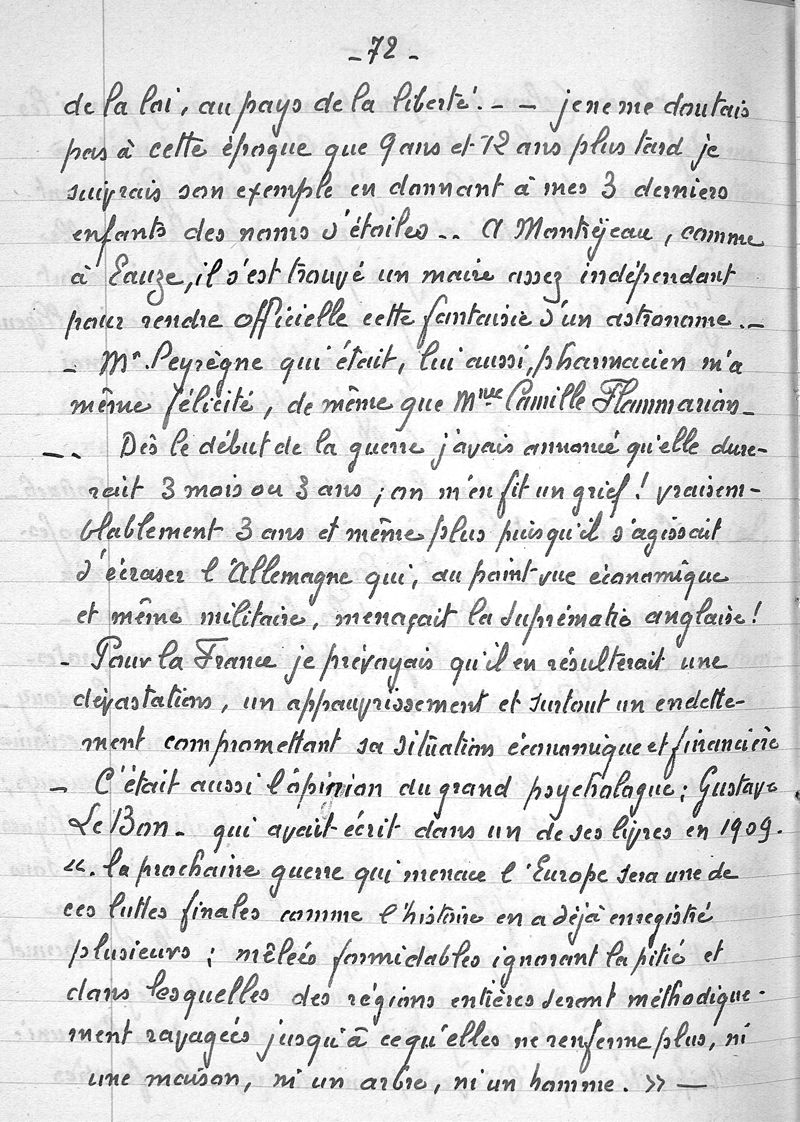 - 72 -
de la loi, au pays de la liberté. - - je ne me doutais
pas à cette époque que 9 ans et 12 ans plus tard je
suivrais son exemple en donnant à mes 3 derniers
enfants des noms d'étoiles .. A Montréjeau, comme
à Eauze, il s'est trouvé un maire assez indépendant
pour rendre officielle cette fantaisie d'un astronome. -
- Mr. Peyrègne qui était, lui aussi, pharmacien m'a
même félicité, de même que Mme Camille Flammarion -
- . Dès le début de la guerre j'avais annoncé qu'elle dure-
rait 3 mois ou 3 ans ; on m'en fit un grief ! vraisem-
blablement 3 ans et même plus puisqu'il s'agissait
d'écraser l'Allemagne qui, au point vue économique
et même militaire, menaçait la suprématie anglaise !
- Pour la France je prévoyais qu'il en résulterait une
dévastation, un appauvrissement et surtout un endette-
ment compromettant sa situation économique et financière
- C'était aussi l'opinion du grand psychologue ; Gustave
Le Bon - qui avait écrit dans un de ses livres en 1909.
«. la prochaine guerre qui menace l'Europe sera une de
ces luttes finales comme l'histoire en a déjà enregistré
plusieurs ; mêlées formidables ignorant la pitié et
dans lesquelles des régions entières seront méthodique-
ment ravagées jusqu'à ce qu'elles ne renferme plus, ni
une maison, ni un arbre, ni un homme. » -